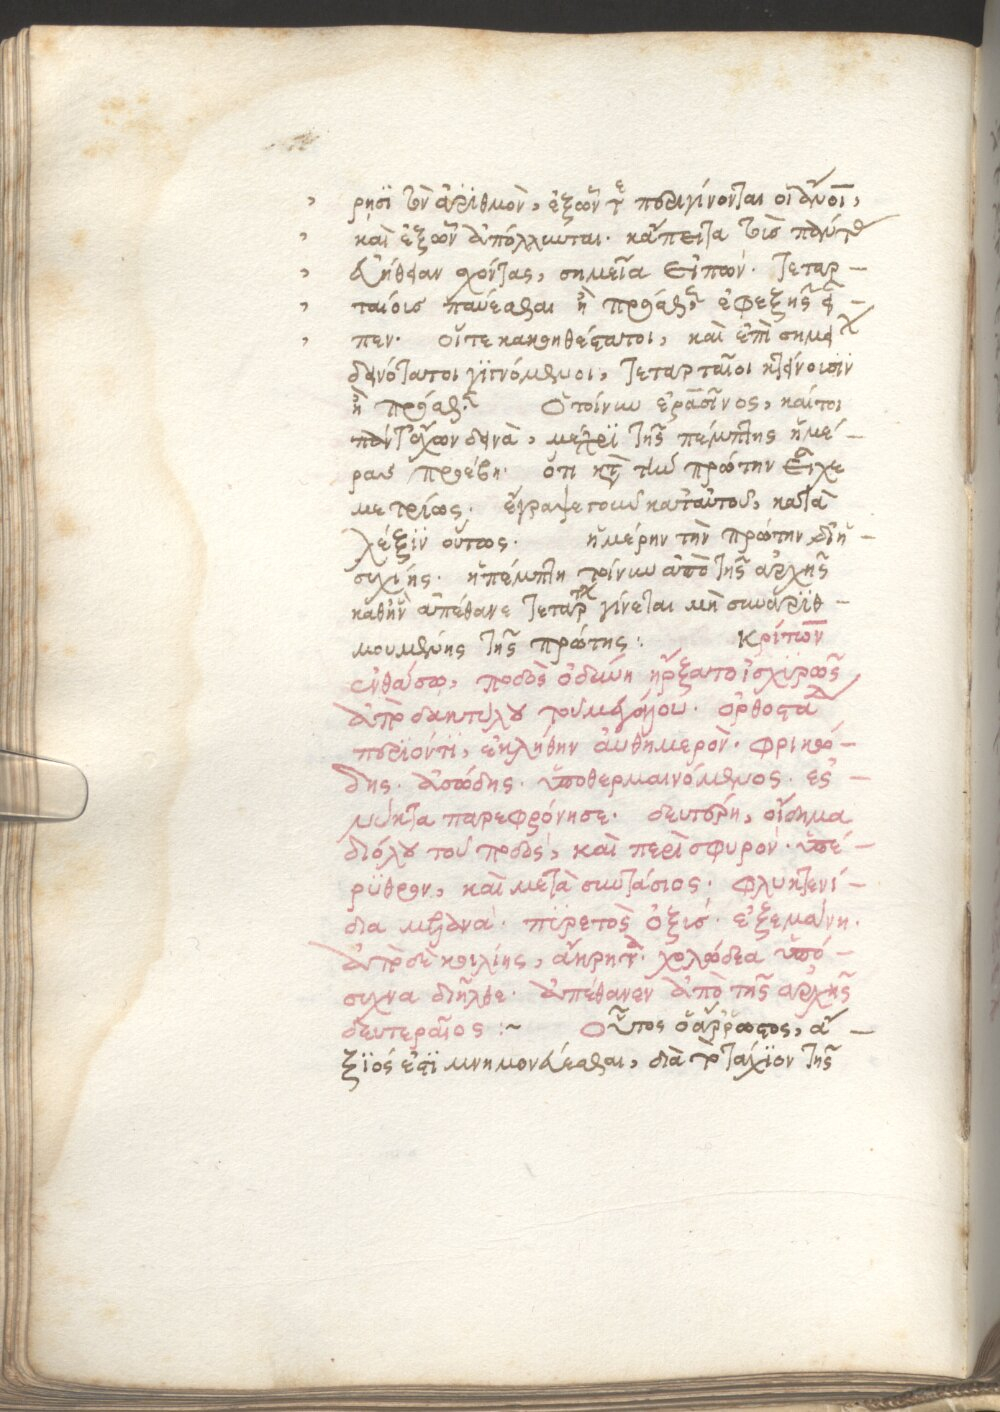 ρῃσϊ τὸν ἀρϊθμὸν, ἐξ ὧν τε περιγίνονται οἱ ἄνοι,
καὶ ἐξ ὧν ἀπόλλυνται. κἄπειτα τοῖς
εὐήθεαν σημεῖα εἰπών. τεταρ –
ταίοις παύεσθαι ἢ πρόσθεν ἐφεξῆς
πεν. οὕτε κακοηθέστατοι, καὶ ἐπὶ σημεί
δεινότατοι γϊνόμενοι, τεταρταῖοι κτείνοισϊν
ἢ πρόσθεν. Ὁ τοίνυν ἐρασῖνος, καίτοι
πάντ' ἔχων δεινὰ, μέχρϊ τῆς πέμπτης ἡμέ –
ρας προέβη. ὅτι κατὰ τὴν πρώτην εἶχε
μετρίως. ἔγραψε γοῦν κατ' αὐτοῦ, κατὰ
λέξϊν οὕτως. ἡμέρην τὴν πρώτην δϊ ἡ –
συχίης. ἡ πέμπτη τοίνυν ἀπὸ τῆς ἀρχῆς
καθ' ἣν ἀπέθανε τετάρτη γίνεται μὴ συναρϊθ –
μουμένης τῆς πρώτης: Κρίτων
ἐν θάσω, ποδὸς ὀδύνη ἤρξατο ἰσχϋρῶς
ἀπὸ δακτύλου τοῦ μεγάλου. ὀρθοστάδην
περϊϊόντϊ, ἐκλήθην αὐθημερὸν. φρικώ –
δης. ἀσώδης. ὑποθερμαινόμενος. ἐς
νύκτα παρεφρόνησε. δευτέρη, οἴδημα
δι' ὅλου τοῦ ποδὸς, καὶ περὶ σφυρὸν. ὑπέ –
ρϋθρον, καὶ μετὰ συντάσιος. φλυκτενί –
δια μέλανα. πϋρετὸς ὀξὺς. ἐξεμάνη.
ἀπὸ δὲ κοιλίης, ἄκρητα. χολώδεα ὑπό –
συχνα διῆλθε. ἀπέθανεν ἀπὸ τῆς ἀρχῆς
δευτεραῖος :~ Οὗτος ὁ ἄρρωστος, ἄ –
ξϊός ἐστϊ μνημονεύεσθαι, διὰ τὸ τάχϊον τῆς